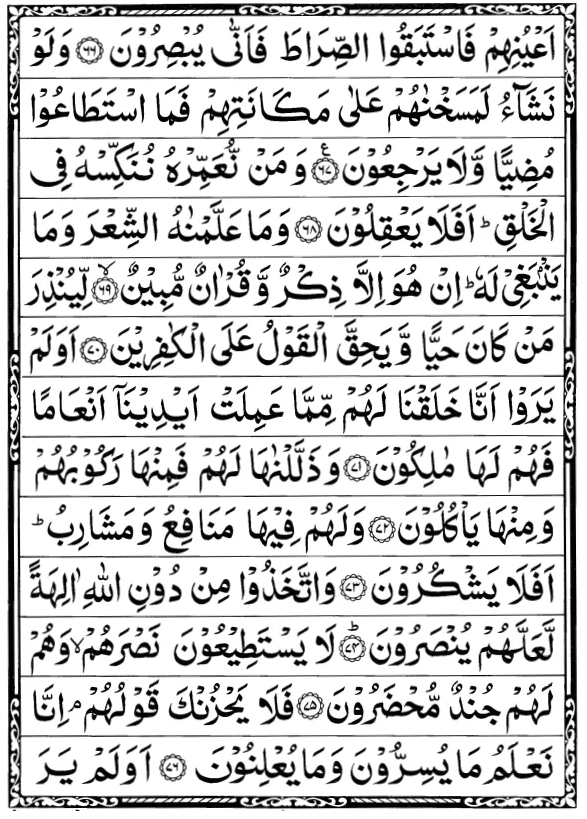 اَعۡيُنِهِمۡ فَاسۡتَبَقُوا الصِّرَاطَ فَاَنّٰى يُبۡصِرُوۡنَ ﴿۶۶﴾ وَلَوۡ
نَشَآءُ لَمَسَخۡنٰهُمۡ عَلٰى مَكَانَتِهِمۡ فَمَا اسۡتَطَاعُوۡا
مُضِيًّا وَّلَا يَرۡجِعُوۡنَ ﴿۶۷﴾ؑ وَمَنۡ نُّعَمِّرۡهُ نُـنَكِّسۡهُ فِى
الۡخَـلۡقِ‌ؕ اَفَلَا يَعۡقِلُوۡنَ ﴿۶۸﴾ وَمَا عَلَّمۡنٰهُ الشِّعۡرَ وَمَا
يَنۡۢبَغِىۡ لَهٗؕ اِنۡ هُوَ اِلَّا ذِكۡرٌ وَّقُرۡاٰنٌ مُّبِيۡنٌۙ ﴿۶۹﴾ لِّيُنۡذِرَ
مَنۡ كَانَ حَيًّا وَّيَحِقَّ الۡقَوۡلُ عَلَى الۡكٰفِرِيۡنَ ﴿۷۰﴾ اَوَلَمۡ
يَرَوۡا اَنَّا خَلَقۡنَا لَهُمۡ مِّمَّا عَمِلَتۡ اَيۡدِيۡنَاۤ اَنۡعَامًا
فَهُمۡ لَهَا مٰلِكُوۡنَ ﴿۷۱﴾ وَذَلَّـلۡنٰهَا لَهُمۡ فَمِنۡهَا رَكُوۡبُهُمۡ
وَمِنۡهَا يَاۡكُلُوۡنَ ﴿۷۲﴾ وَلَهُمۡ فِيۡهَا مَنَافِعُ وَمَشَارِبُ‌ؕ
اَفَلَا يَشۡكُرُوۡنَ ﴿۷۳﴾ وَاتَّخَذُوۡا مِنۡ دُوۡنِ اللّٰهِ اٰلِهَةً
لَّعَلَّهُمۡ يُنۡصَرُوۡنَؕ ﴿۷۴﴾ لَا يَسۡتَطِيۡعُوۡنَ نَصۡرَهُمۡۙ وَهُمۡ
لَهُمۡ جُنۡدٌ مُّحۡضَرُوۡنَ ﴿۷۵﴾ فَلَا يَحۡزُنۡكَ قَوۡلُهُمۡۘ اِنَّا
نَعۡلَمُ مَا يُسِرُّوۡنَ وَمَا يُعۡلِنُوۡنَ ﴿۷۶﴾ اَوَلَمۡ يَرَ